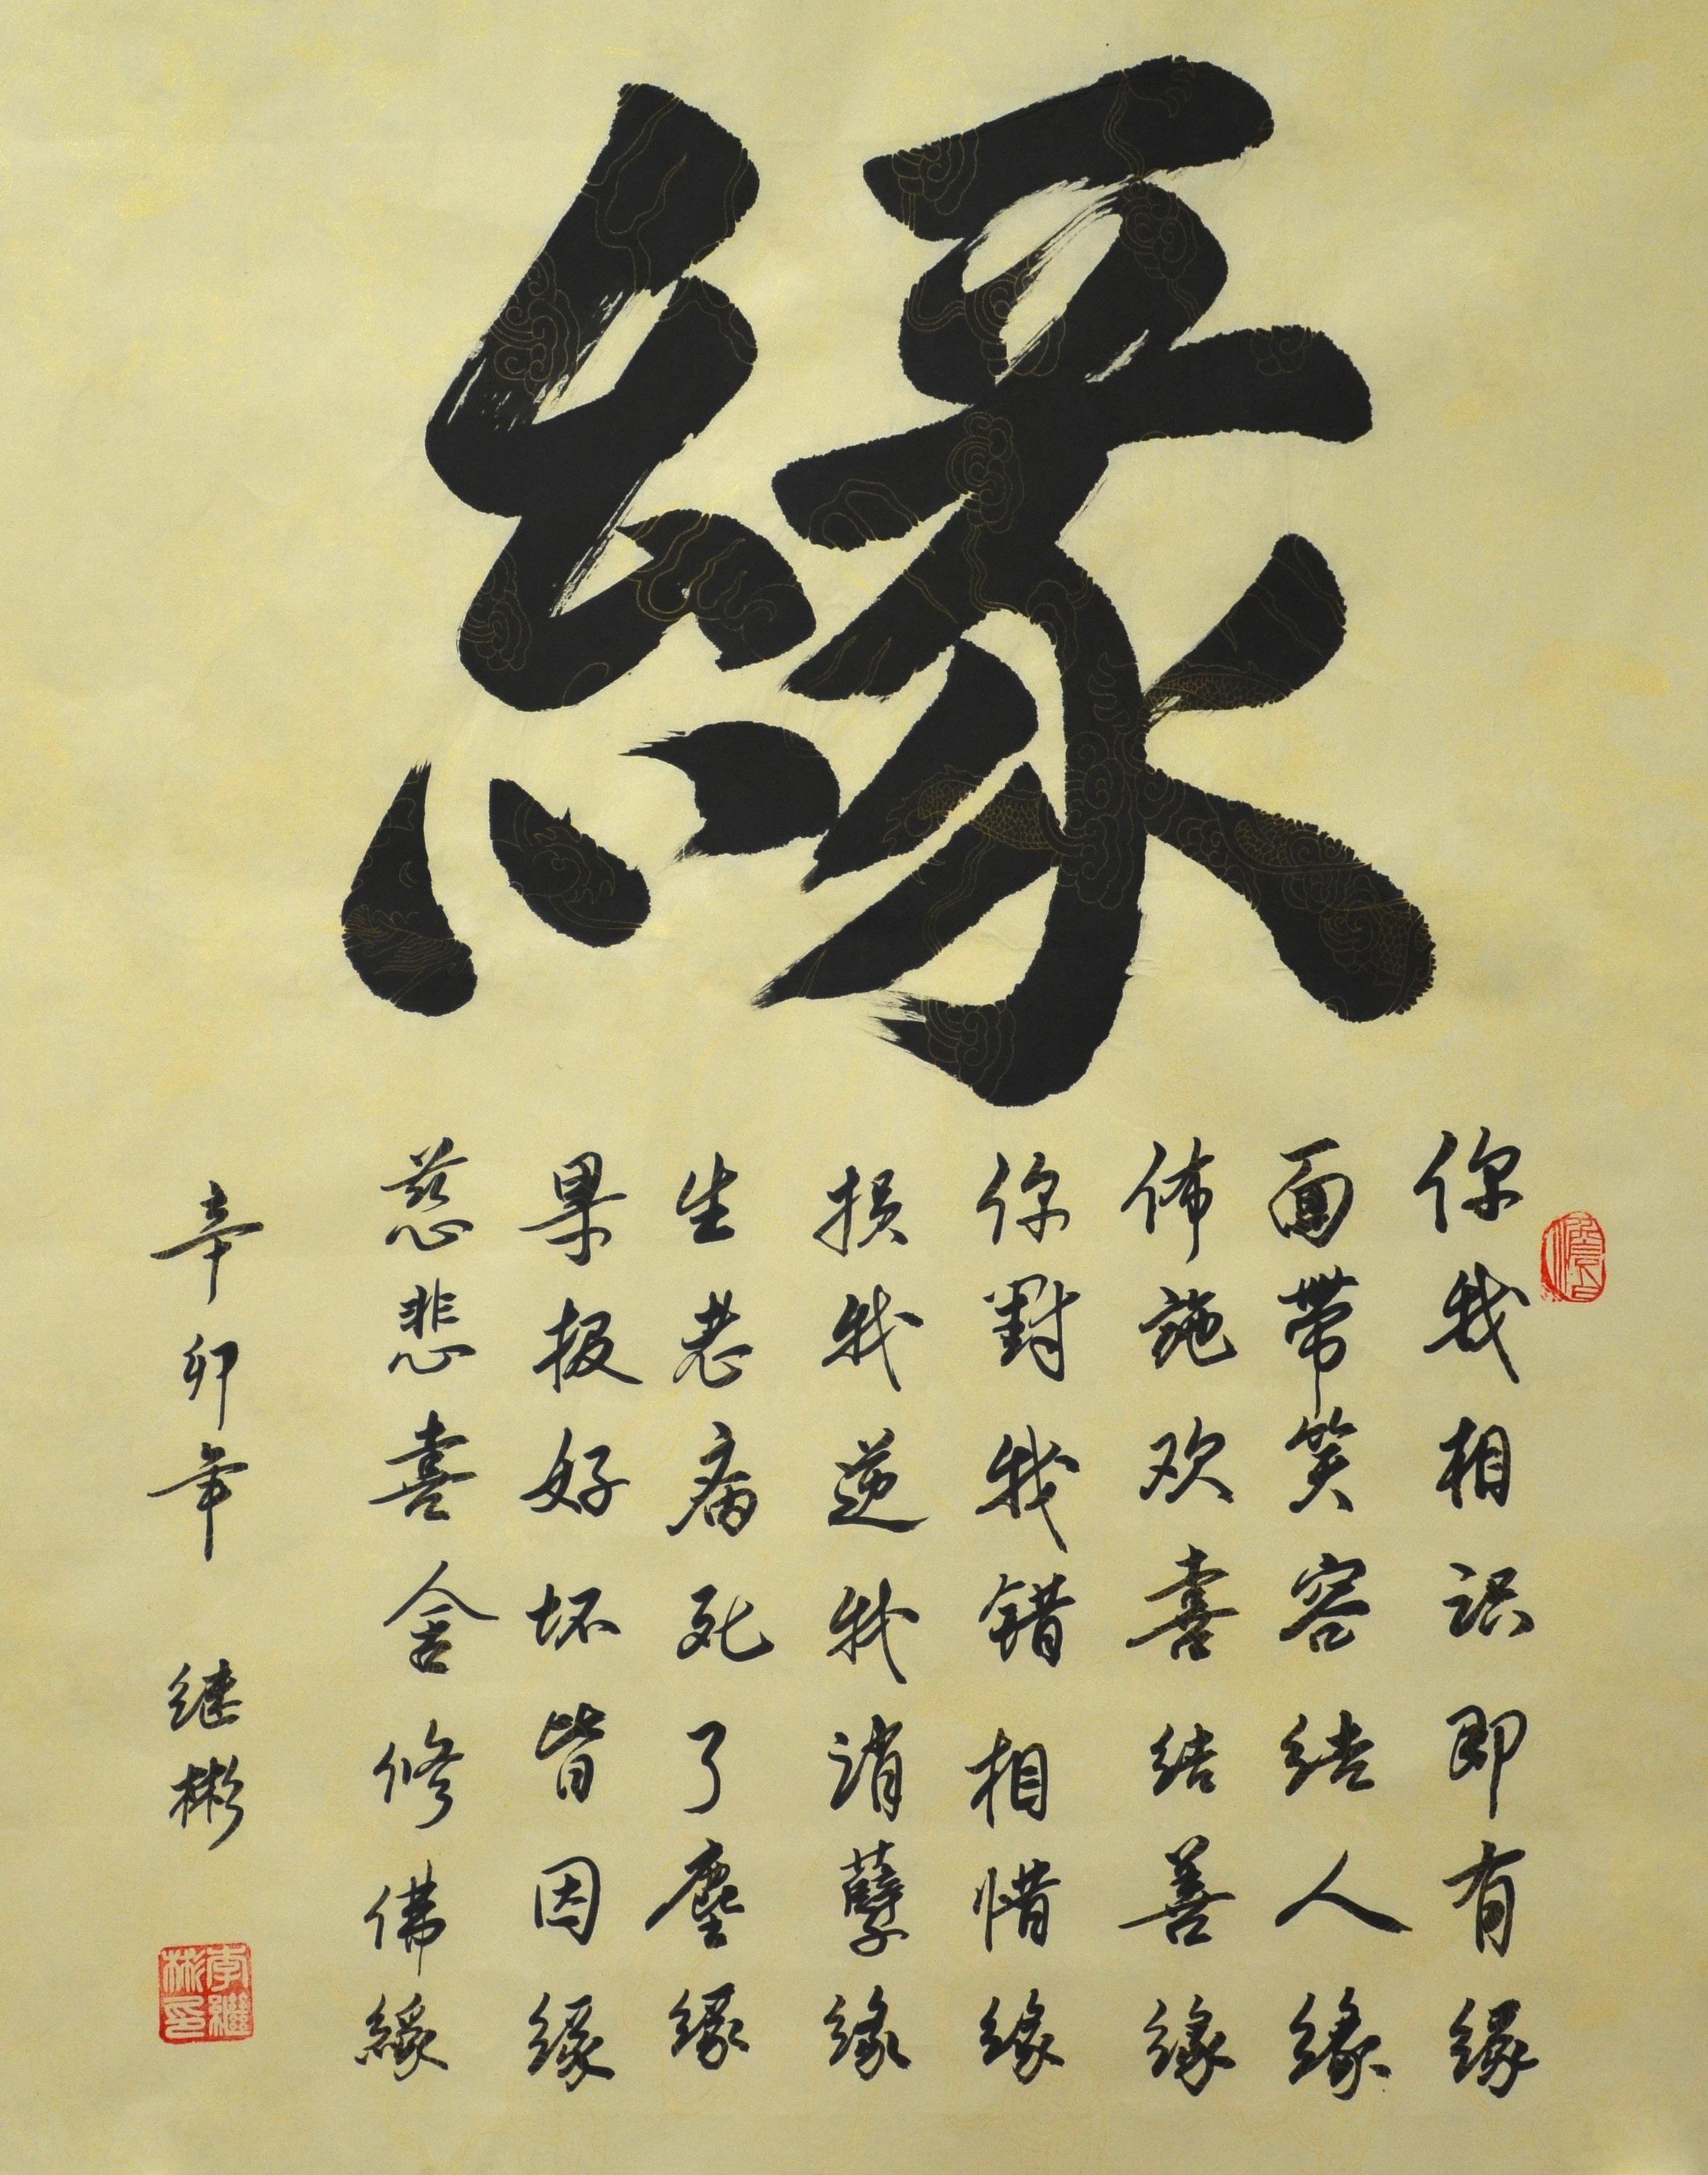 緣
你我相识即有缘
面带笑容结人缘
佈施欢喜结善缘
你對我錯相惜缘
损我逆我消孽缘
生老病死了塵缘
果报好坏皆因缘
慈悲喜舍修佛緣
辛卯年 继彬
李繼彬印